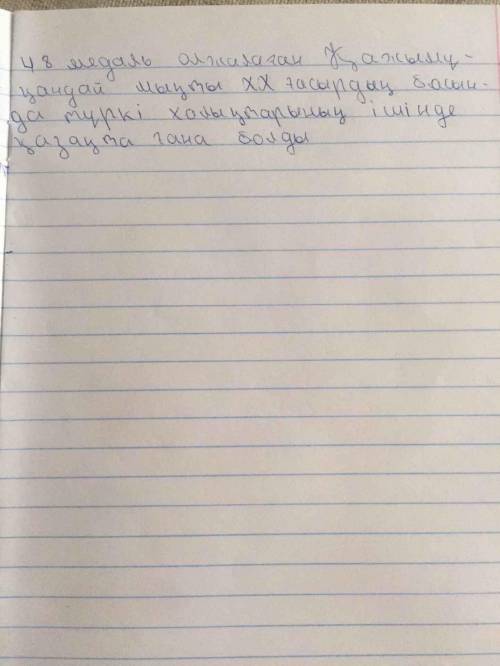 48 медаль олжалаған Қажымұ-
қандай мықты XX ғасырдың басын-
да түркі халықтарының ішінде
қазақта ғана болды